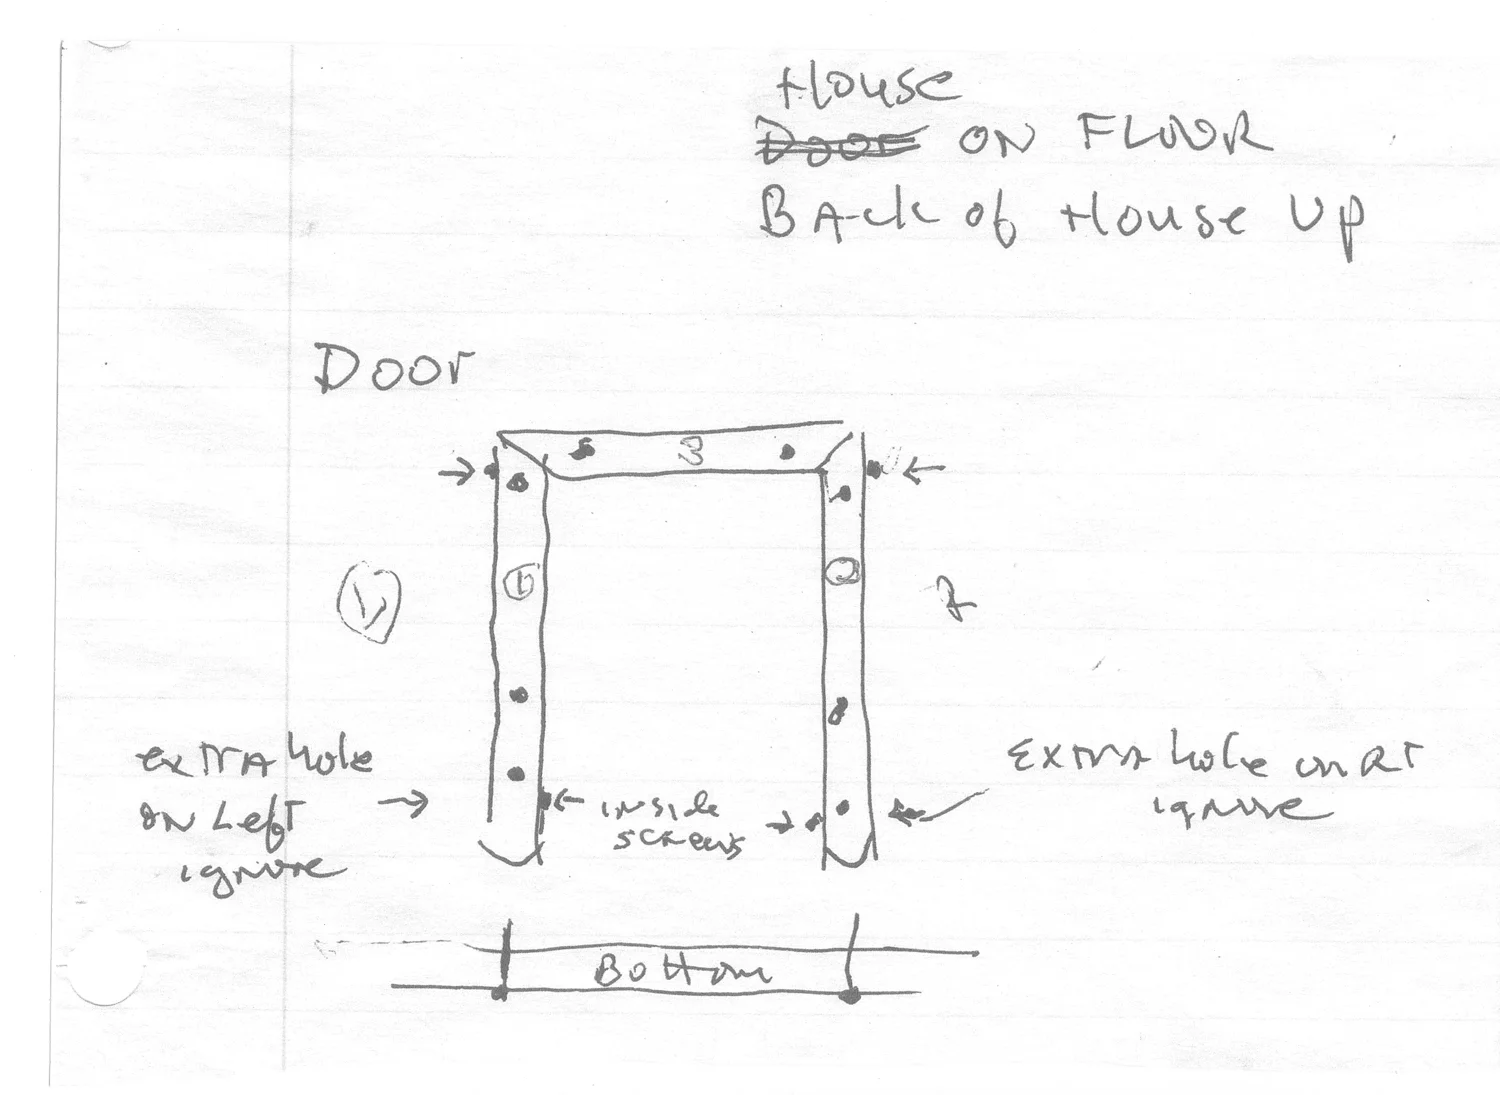 House
Door ON FLOOR
BAck of House Up
Door
3
1
2
L
extrA hole
ON Left
ignore
inside
screws
EXTRA hole on RT
ignore
Bottom